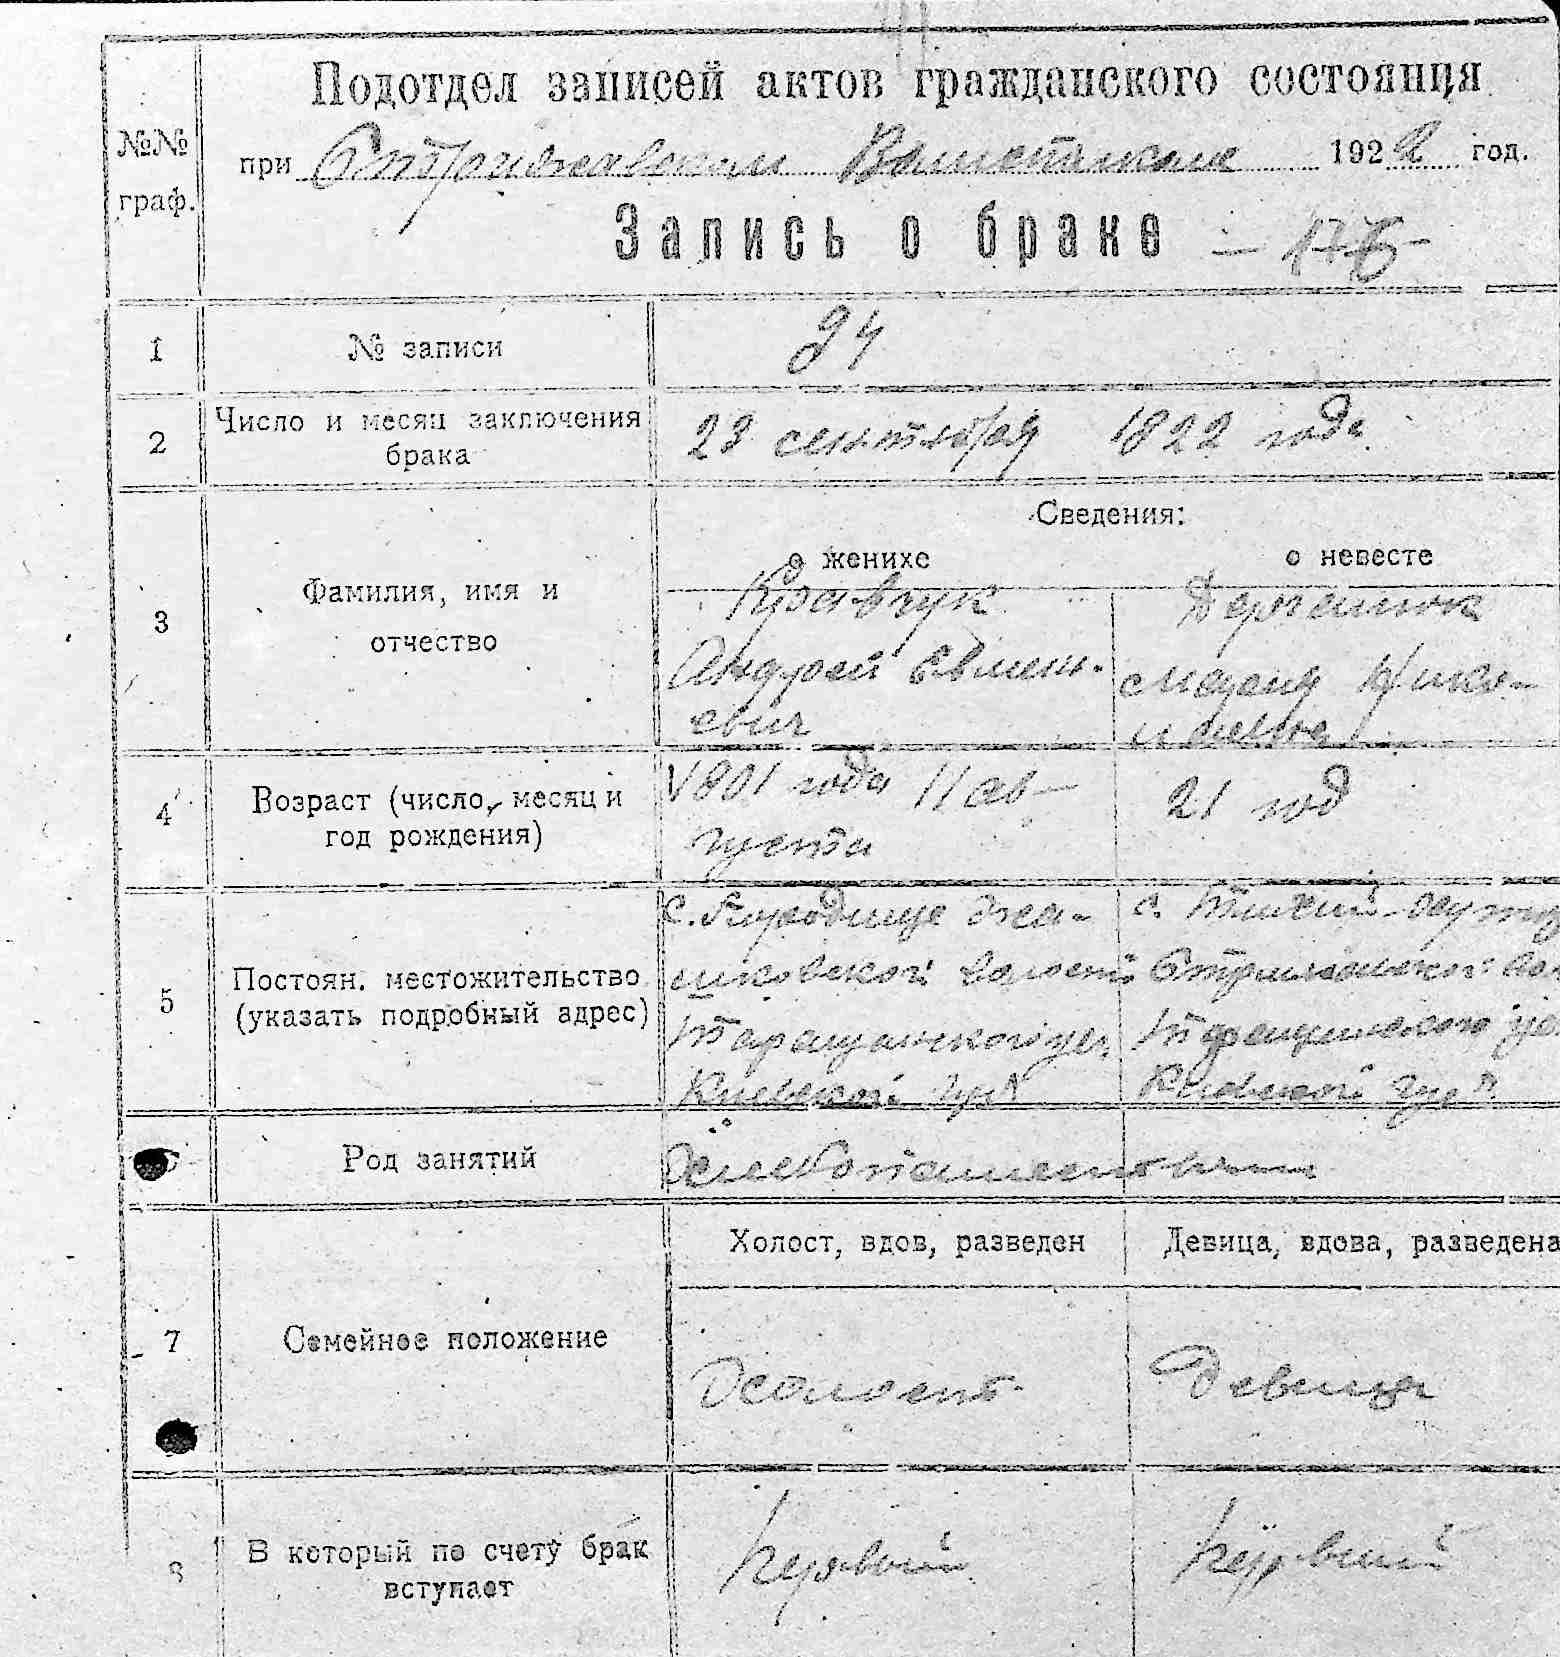 №№ граф.
Подотдел записей актов гражданского состояния
при Стрижавском Волисполкоме 1922 год.
Запись о браке – 176 –
1 № записи 94
2 Число и месяц заключения 23 сентября 1822 года
брака
Сведения:
о женихе о невесте
3 Фамилия, имя и Кравчук
отчество Андрей Евмень-
евич
4 Возраст (число, месяц и 1801 года 11 ав- 21 год
год рождения) густа
с. Городище с.
5 Постоян. местожительство волости
(указать подробный адрес) Таращанского Таращанского
Киевской губ Киевской губ
6 Род занятий
Холост, вдов, разведен Девица, вдова, разведена
7 Семейное положение
Холост Девица
8 В который по счету брак Первый Первый
вступает